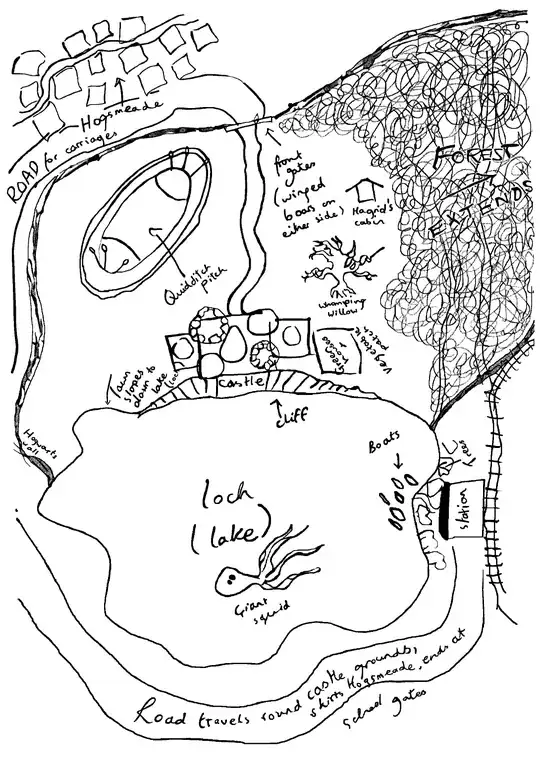 Hogsmeade
ROAD for carriages
front
gates
(winged
boars on
either side)
Hagrid's
cabin
FOREST
EXTENDS
Quidditch
pitch
Whomping
willow
vegetable
patch
Greenhouses
Castle
Lawn
slopes
down to
lake
cliff
Hogwarts
wall
Boats
Trees
station
loch
(lake)
Giant
squid
Road travels round castle grounds,
skirts Hogsmeade, ends at
school gates